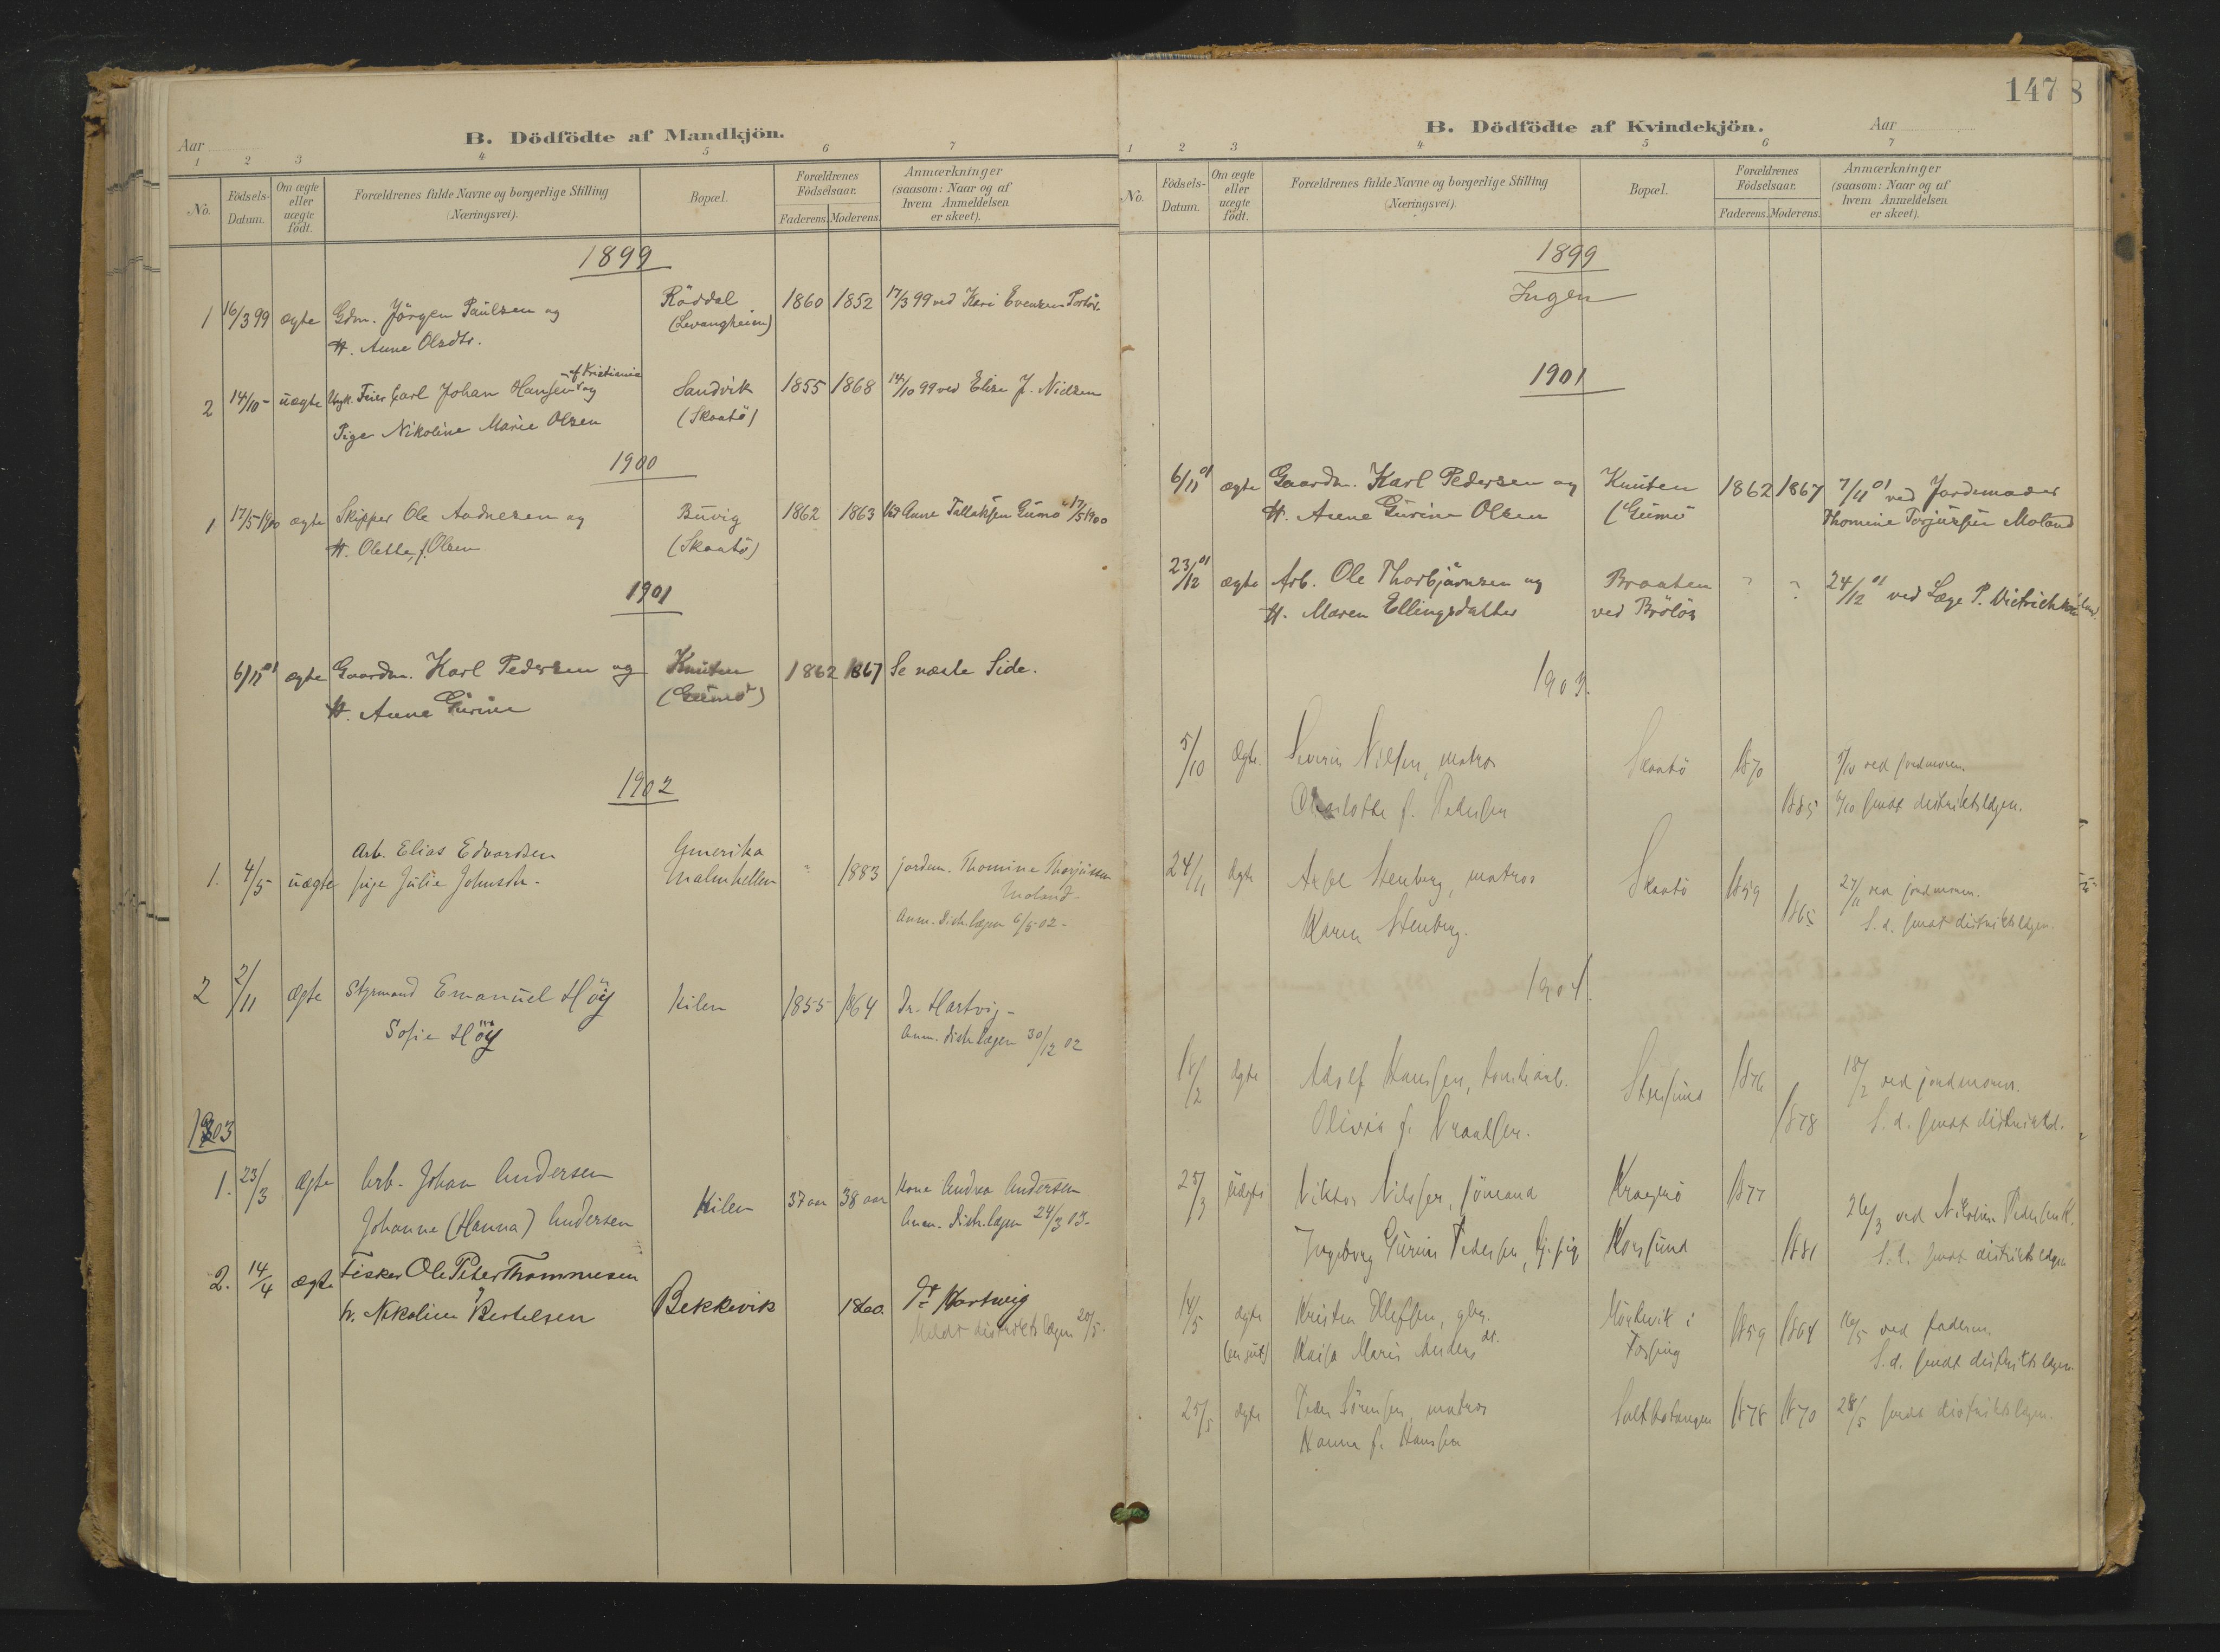 Aar
B. Dödfödte af Mandkjön.
1 2 3 4 5 6 7
No.
Födsels-Datum.
Om ægte eller uægte födt.
Forældrenes fulde Navne og borgerlige Stilling (Næringsvei).
Bopæl.
Forældrenes Födselsaar.
Faderens. Moderens.
Anmærkninger (saasom: Naar og af hvem Anmeldelsen er skeet).
1899
1 16/3 99 ægte Gdm. Jörgen Paulsen og Röddal 1860 1852 17/3 99 ved Kari Evensen Portör.
H. Anne Olsdtr. (Levangheien)
af Kristiania
2 14/10 - uægte Ungk. Feier Carl Johan Hansen og Sandvik 1855 1868 14/10 99 ved Elise J. Nielsen
Pige Nikoline Marie Olsen (Skaatö)
1900
1 17/5 1900 ægte Skipper Ole Aadnesen og Buvig 1862 1863 Ved Anne Tallaksen Gumö 17/5 1900
H. Olette, f. Olsen (Skaatö)
1901
6/11 01 ægte Gaardm. Karl Pedersen og Knuten 1862 1867 Se næste Side.
H. Anne Gurine (Gumö)
1902
1. 4/5 uægte Arb. Elias Edvardsen Amerika
pige Julie Johnsdtr. Malmhellen " 1883 jordem. Thomine Thorjussen
Moland -
Anm. distr.lægen 6/5 02 -
2 2/11 ægte Styrmand Emanuel Höy Kilen 1855 1864 Dr. Hartvig -
Sofie Höy Anm. distr.lægen 30/12 02
1903
1. 23/3 ægte Arb. Johan Andersen Kilen 37 aar 38 aar Kone Andrea Andersen
Johanne (Hanna) Andersen Anm. distr.lægen 24/3 03.
2. 14/4 ægte Fisker Ole Peter Thommesen
og
h. Nikoline Bertelsen Bekkevik 1860. Dr Hartwig
Meldt distriktslægen 20/5.
147
8
B. Dödfödte af Kvindekjön.
Aar
1 2 3 4 5 6 7
No.
Födsels-Datum.
Om ægte eller uægte födt.
Forældrenes fulde Navne og borgerlige Stilling (Næringsvei).
Bopæl.
Forældrenes Födselsaar.
Faderens. Moderens.
Anmærkninger (saasom: Naar og af hvem Anmeldelsen er skeet).
1899
Ingen
1901
6/11 01 ægte Gaardm. Karl Pedersen og Knuten 1862 1867 7/11 01 ved Jordemoder
H. Anne Gurine Olsen (Gumö Thomine Torjussen Moland
23/12 01 ægte Arb. Ole Thorbjörnsen og Braaten ? ? 24/12 01 ved Læge P. Dietrichson
H. Maren Ellingsdatter ved Brölös
1903.
5/10 Ægte. Severin Nilsen, matros Skaatö 1870 5/10 ved jordmoren.
Charlotte f. Pedersen 1885 6/10 sendt distriktslægen.
24/11 ægte Axel Stenberg, matros Skaatö 1859 27/11 ved jordmoren.
Karen Stenberg. 1865 S. d. sendt distriktslægen.
1904.
18/2 ægte Adolf Hansen, tomtearb. Stensund 1876 18/2 ved jordmoren.
Olivia f. Vraalsen. 1878 S. d. sendt distriktsl.
25/3 uægte Viktor Nilssen, sömand Kragerö 1877 26/3 ved Nikoline Pedersen K.
Ingeborg Gurine Pedersen, tj.pige Korssund 1881 S. d. sendt distriktslægen
14/5 ægte Kristen Oleffsen, gbr. Mörkevik i 1859 1864 16/5 ved faderen.
Kaisa Marie Andersdt. Fossing S. d. sendt distriktslægen.
25/5 ægte Peder Sörensen, matros Saltbotangen 1878 1870 28/5 sendt distriktslægen.
Hanna f. Hansen